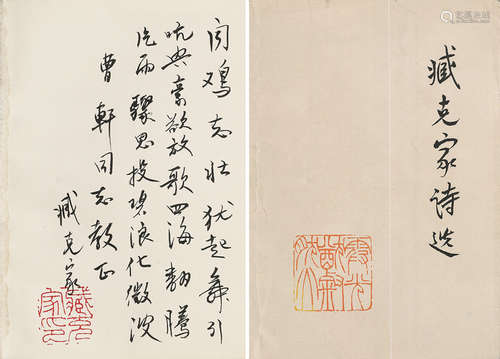 闻鸡志壮犹起舞引
吭兴豪欲放歌四海翻腾
雨骤思投碧浪化微波
曹軒同志教正
臧克家
臧克家印
臧克家诗选